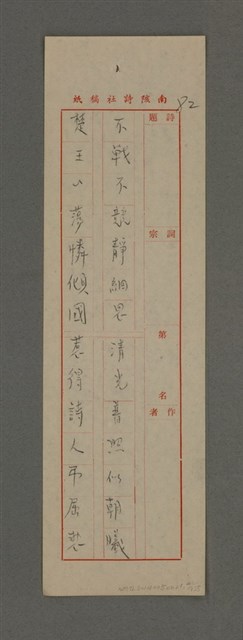 南陔詩社稿紙
82
詩題
詞宗
第 名
作者
不戰不競靜細思清光普照似朝曦
楚王心蕩憐傾國惹得詩人弔屈悲